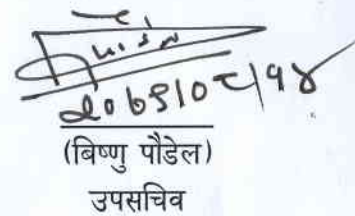 २०७९।०८।१४
(बिष्णु पौडेल)
उपसचिव